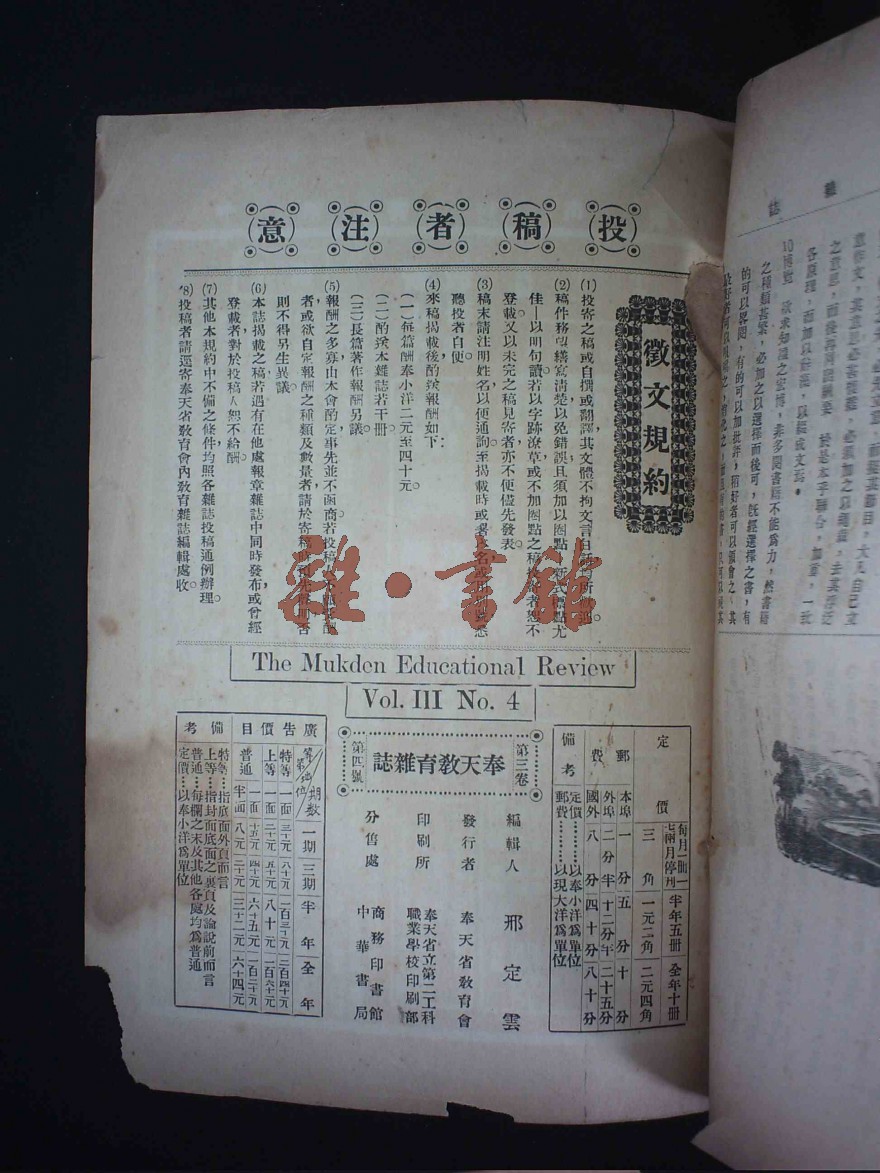 投稿者注意
徵文規約
(1)投寄之稿或自撰或翻譯其文體不拘文言白話
(2)稿件務望繕寫清楚以免錯誤且須加以圈點新式標點尤
佳以明句讀若以字跡潦草或不加圈點之稿恕不
登載又以未完之稿見寄者亦不便儘先發表。
(3)稿末請注明姓名以便通詢至揭載時或署名或
聽投者自便。
(4)來稿揭載後酌致報酬如下:
(一)每篇酬奉小洋二元至四十元。
(二)酌送本雜誌若干冊。
(三)長篇著作報酬另議。
(5)報酬之多寡由本會酌定事先並不函商若投稿人
者,或欲自定報酬之種類及數量者請於寄稿時預先聲明否
則不得另生異議。
(6)本誌揭載之稿若遇有在他處報章雜誌中同時發布或曾經
登載者對於投稿人恕不給酬。
(7)其他本規約中不備之條件均照各雜誌投稿通例辦理。
(8)投稿者請逕寄奉天省教育會內教育雜誌編輯處收。
雜·書館
The Mukden Educational Review
Vol. III No. 4
定價
每月一冊一七兩月停刊 半年五冊 全年十冊
三角 一元二角 二元四角
郵費
本埠 一分 五分 十分
外埠 二分半 十二分半 二十五分
國外 八分 四十分 八十分
備考
定價………以奉小洋為單位
郵費………以現大洋為單位
第三卷
奉天教育雜誌
第四號
編輯人 邢定雲
發行者 奉天省教育會
印刷所 奉天省立第二工科職業學校印刷部
分售處 商務印書館
中華書局
廣告價目
等第 地位 期數 一期 三期 半年 全年
特等 一面 三十元 八十元 一百三十元 二百四十元
上等 一面 二十元 五十元 八十元 一百六十元
普通 一面 十五元 四十元 六十五元 一百二十元
半面 八元 二十元 三十二元 六十四元
備考
特等…指底面外頁而言
上等…指封面底面之裏頁及論說前而言
普通…每欄之末及其他各處均為普通
定價…以奉小洋為單位
雜誌
各原理,而加以
之種類甚繁,必加之以選擇而後可,既經選擇之書,有
的可以略閱,有的可以加批評,稍好者可以領會之,其